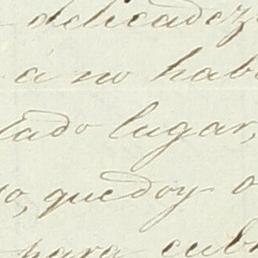 delicadez
á no hab
tado lugar,
o, que doy o
para cub